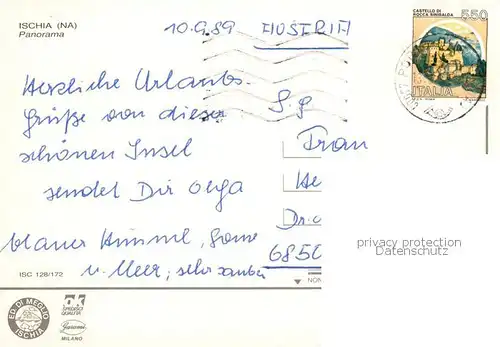 ISCHIA (NA)
Panorama
10.9.89 AUSTRIA
CASTELLO DI
ROCCA SINIBALDA
550
ITALIA
Herzliche Urlaubs-
grüße von dieser
schönen Insel
sendet Dir Olga
blauer Himmel, Sonne
u. Meer, sehr sauber
S.g
Frau
He
Dr.
6850
privacy protection
Datenschutz
ISC 128/172
ED. DI MEGLIO
ISCHIA
QUALITÀ
MILANO